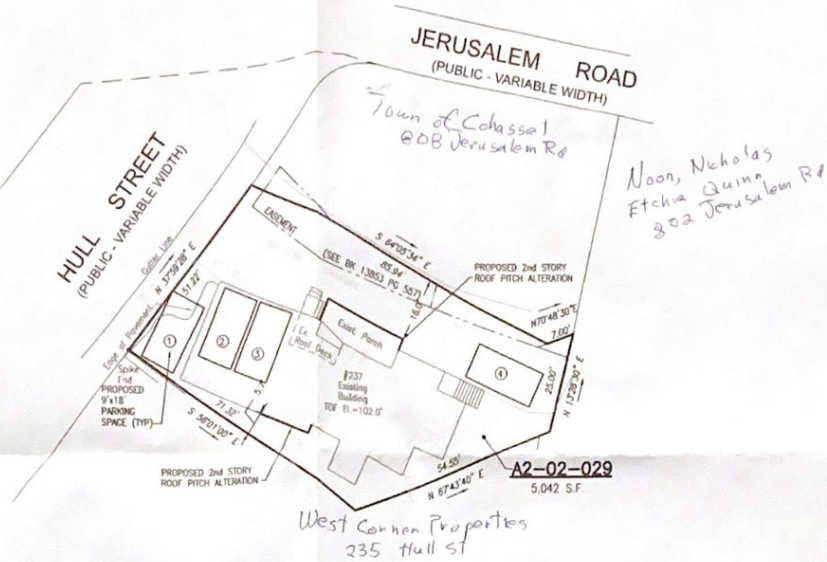 JERUSALEM ROAD
(PUBLIC - VARIABLE WIDTH)
Town of Cohasset
808 Jerusalem Rd
Noon, Nicholas
Etchie Quinn
802 Jerusalem Rd
HULL STREET
(PUBLIC - VARIABLE WIDTH)
Gutter Line
Edge of Pavement
N 37°59'28" E
51.22'
EASEMENT
S 64°05'34" E
85.94'
(SEE BK 13853 PG 557)
16.0'
PROPOSED 2nd STORY
ROOF PITCH ALTERATION
N70°48'30"E
7.00'
25.00'
N 13°28'30" E
1
2
3
4
Ex.
Roof Deck
Exist. Porch
#237
Existing
Building
TOF El.=102.0'
5.7'
Spike
Fnd
PROPOSED
9'x18'
PARKING
SPACE (TYP)
71.32'
S 56°01'00" E
PROPOSED 2nd STORY
ROOF PITCH ALTERATION
54.55'
N 67°43'40" E
A2-02-029
5,042 S.F.
West Corner Properties
235 Hull St